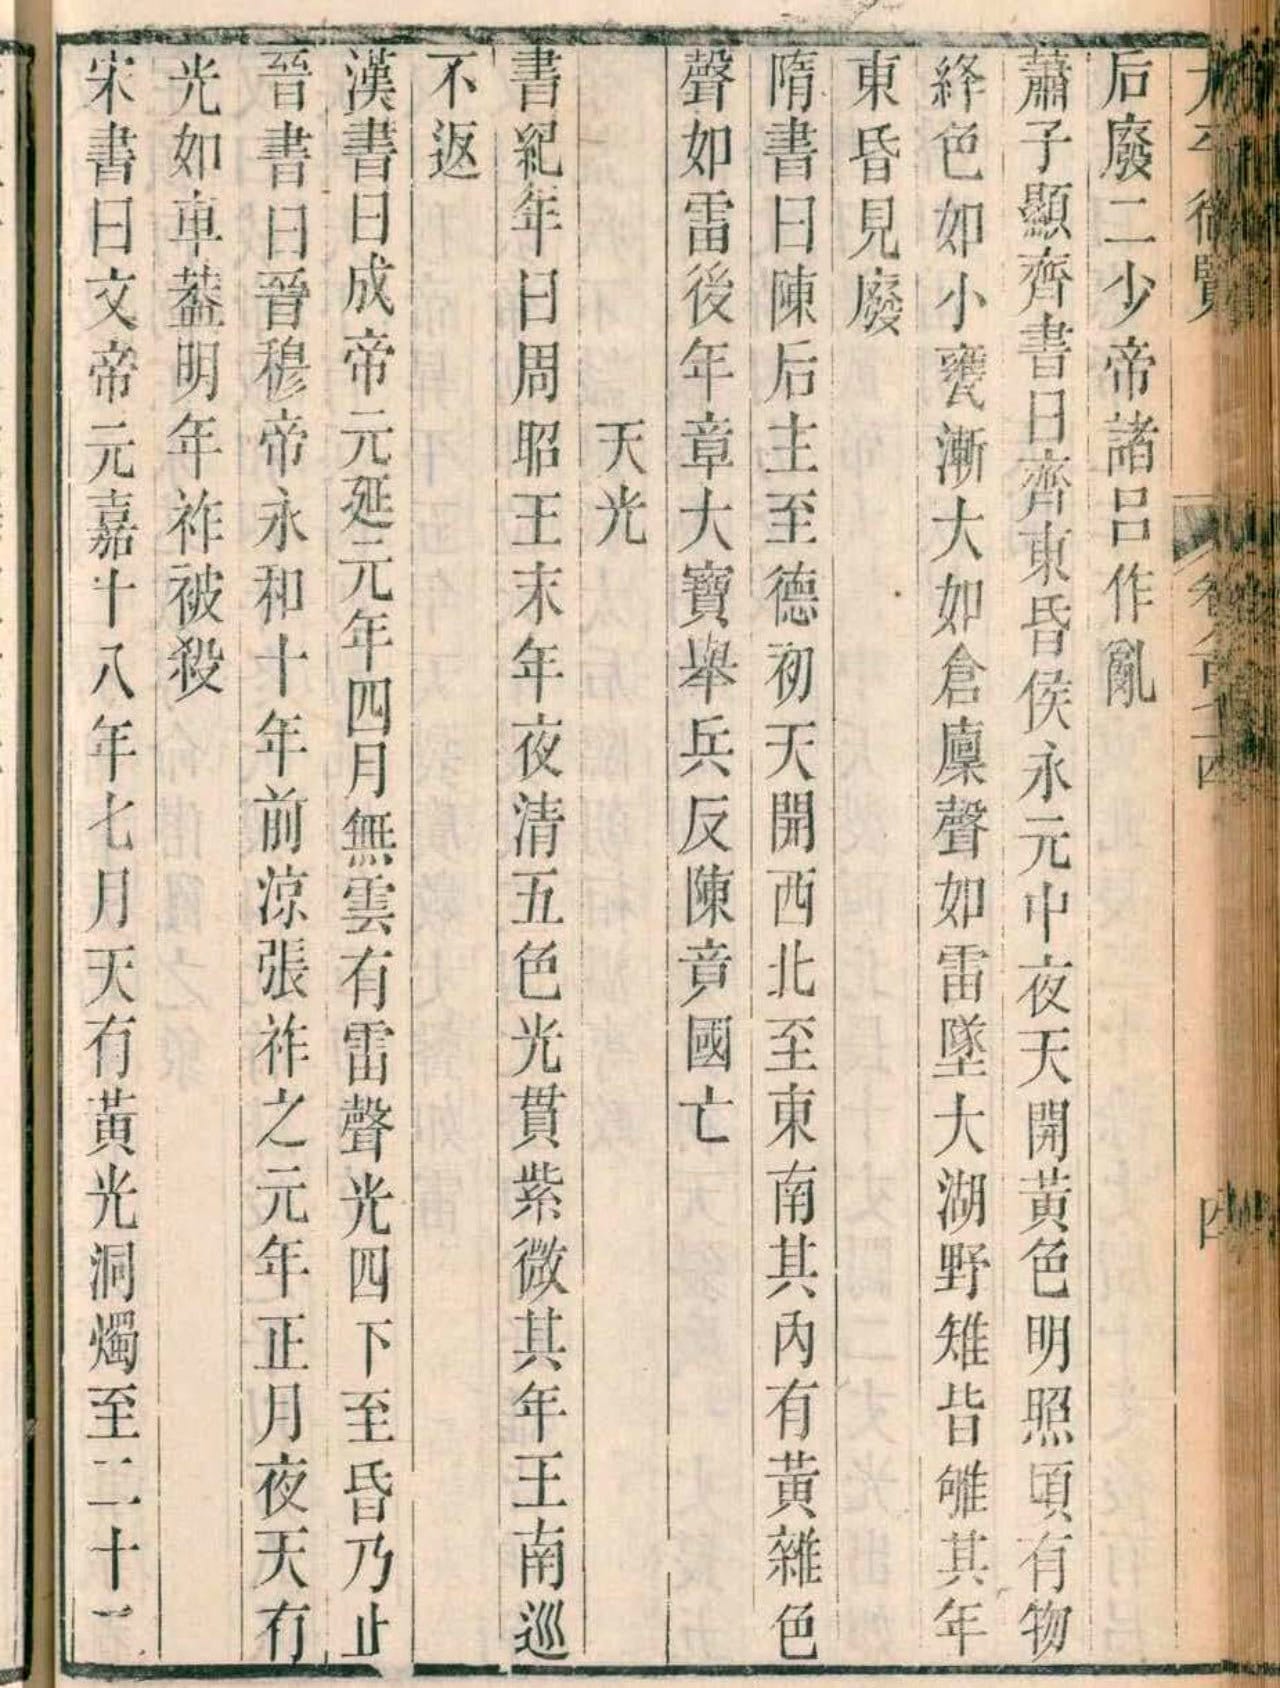 后廢二少帝諸呂作亂
蕭子顯齊書曰齊東昏侯永元中夜天開黃色明照頃有物
絳色如小甕漸大如倉廩聲如雷墜大湖野雉皆雊其年
東昏見廢
隋書曰陳后主至德初天開西北至東南其內有黃雜色
聲如雷後年章大寶舉兵反陳竟國亡
天光
書紀年曰周昭王末年夜清五色光貫紫微其年王南巡
不返
漢書曰成帝元延元年四月無雲有雷聲光四下至昏乃止
晉書曰晉穆帝永和十年前涼張祚之元年正月夜天有
光如車葢明年祚被殺
宋書曰文帝元嘉十八年七月天有黃光洞燭至二十